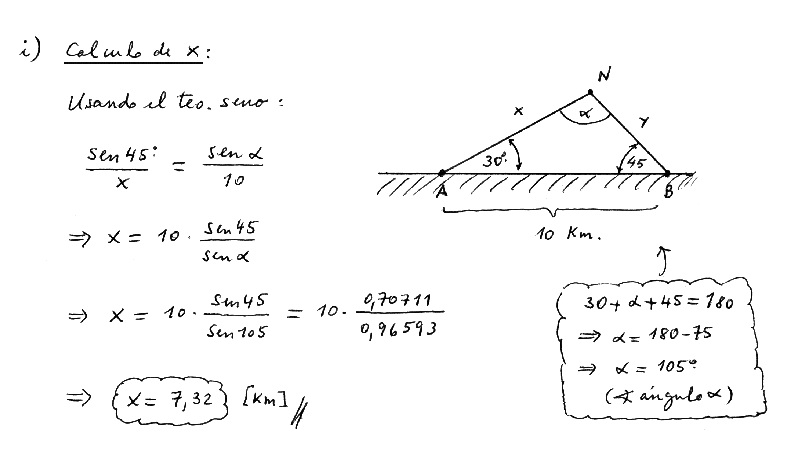 i) Calculo de x:
Usando el teo. seno:
sen 45° / x = sen α / 10
⇒ x = 10 · sen 45 / sen α
⇒ x = 10 · sen 45 / sen 105 = 10 · 0,70711 / 0,96593
⇒ x = 7,32 [Km]
N
x
α
y
30°
45
A
B
10 Km.
30 + α + 45 = 180
⇒ α = 180 - 75
⇒ α = 105°
(∢ ángulo α)